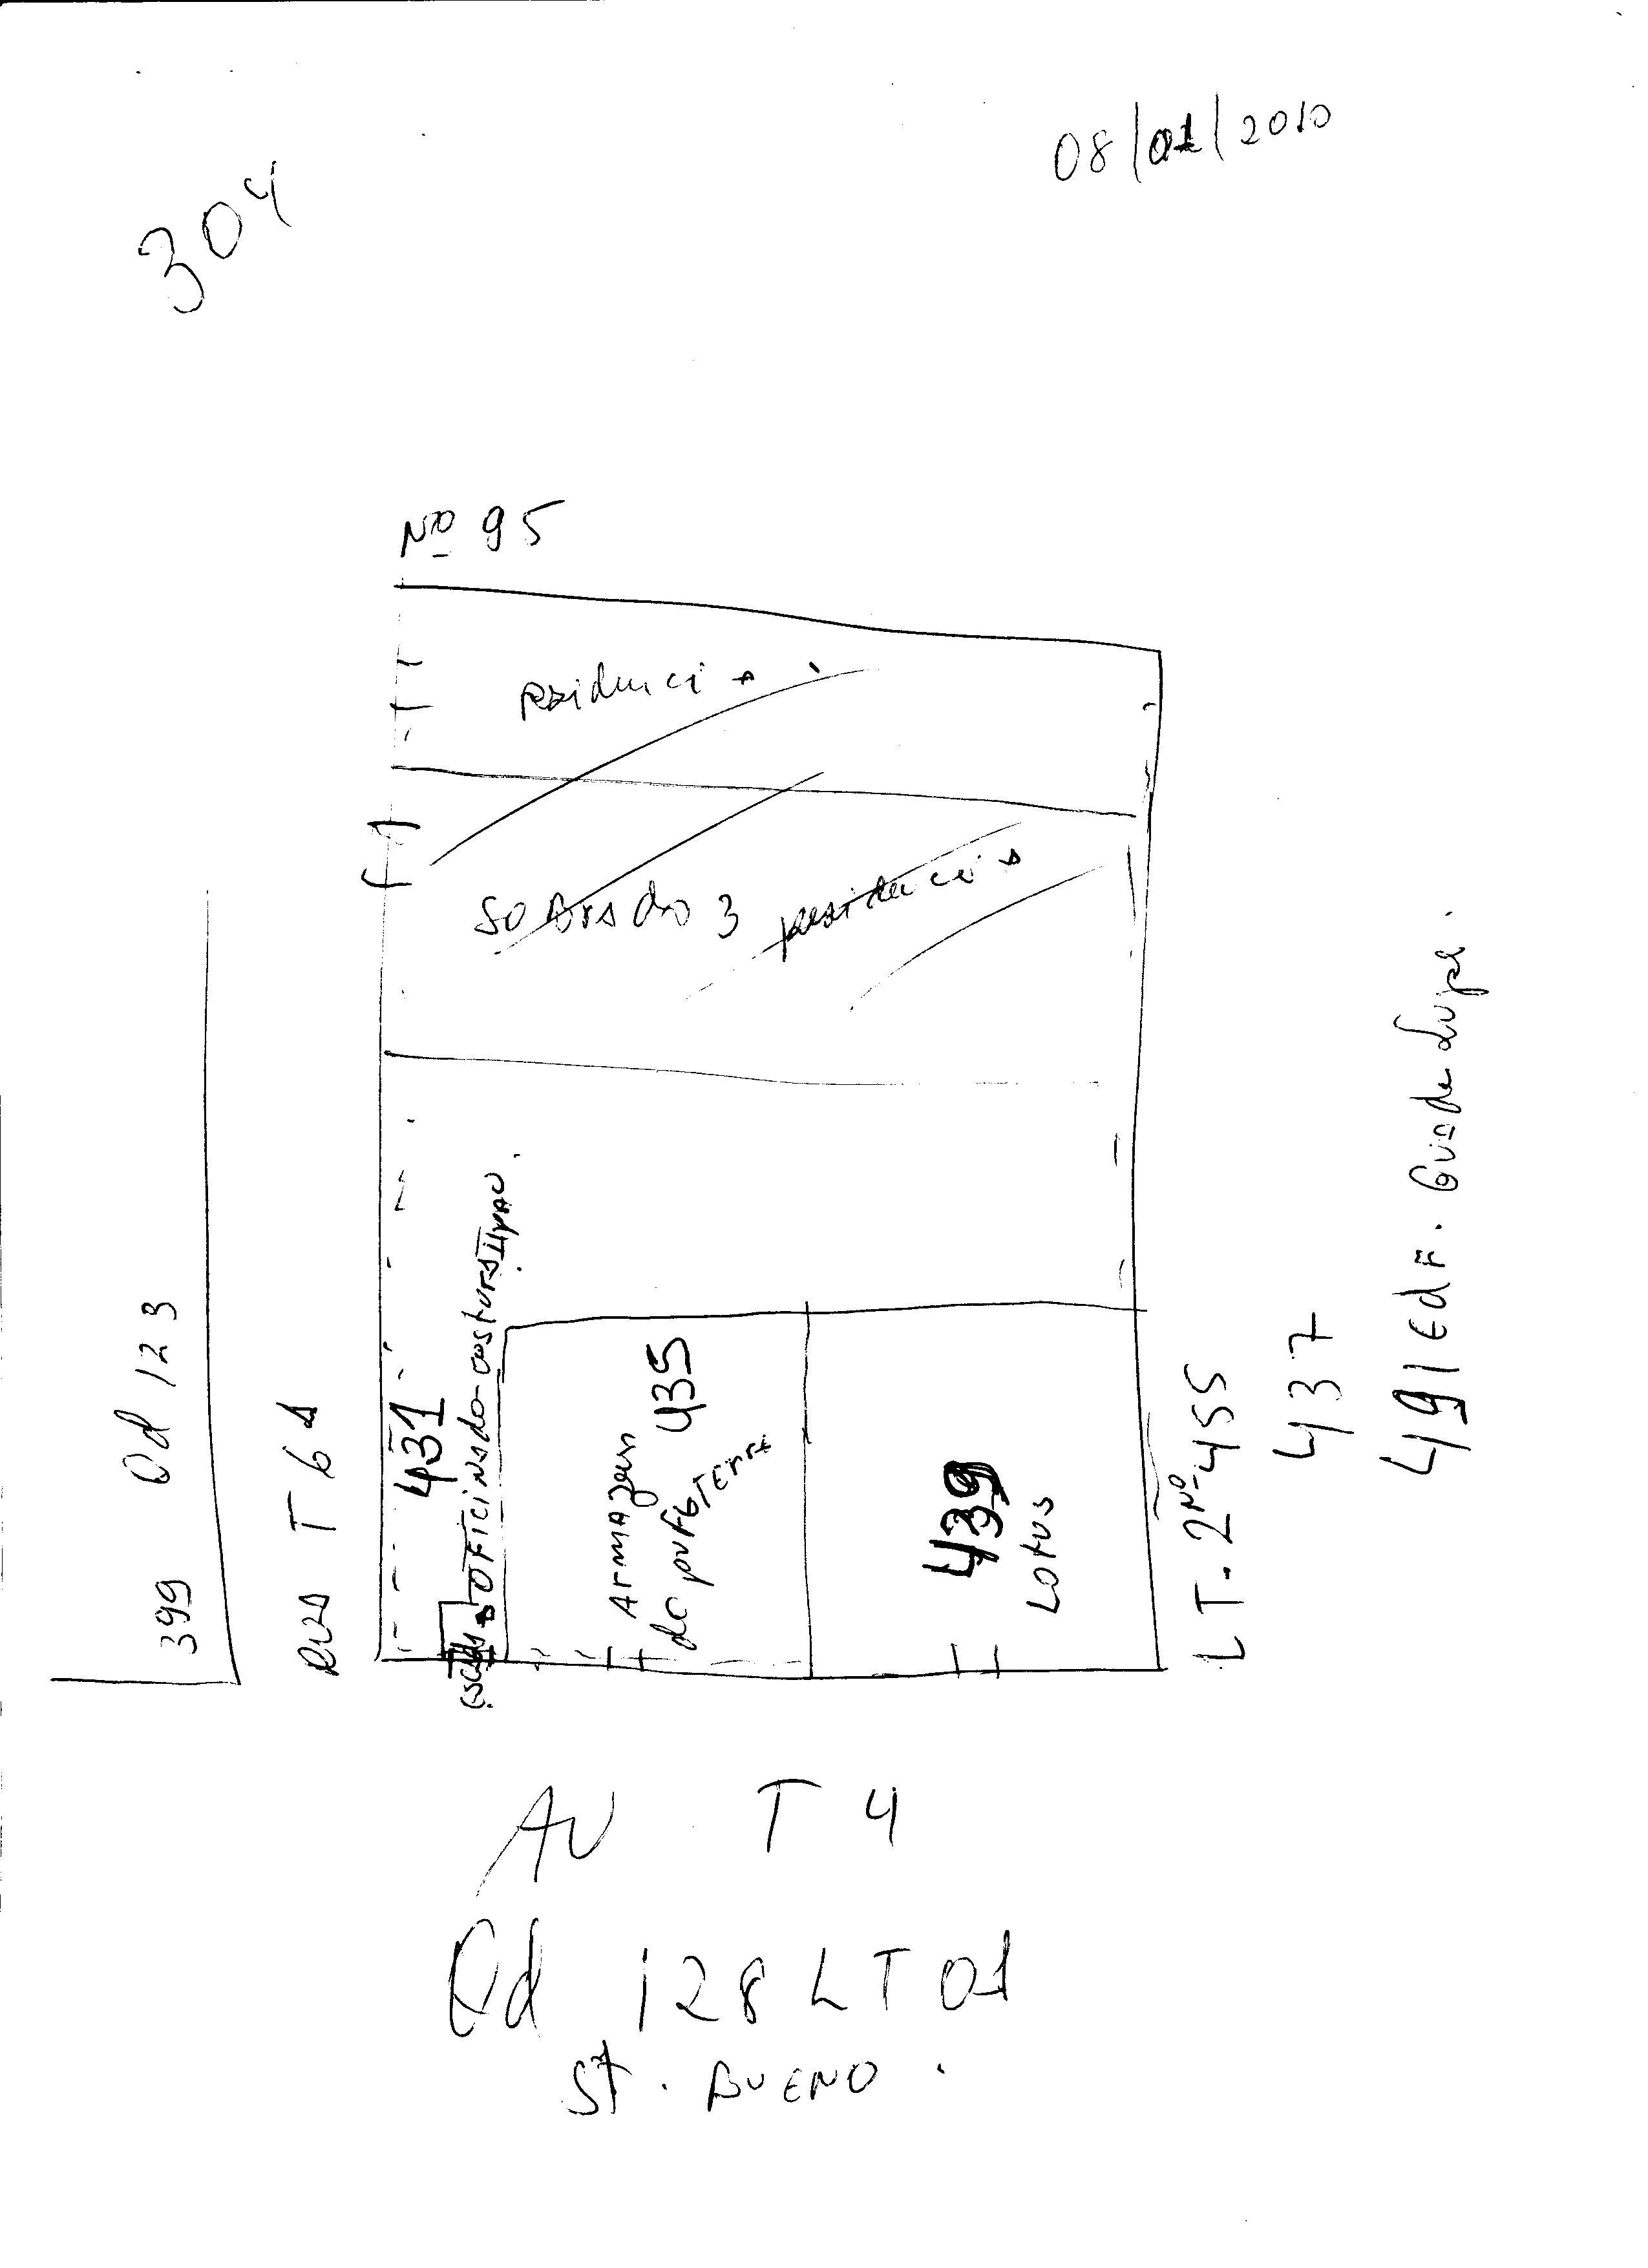 08/01/2010
304
Nº 95
residencia
sobrado 3 residencia
Qd 123
399
RUA T 64
431
escada
OFICINA do costura
Armazem
do puff
TErre
435
439
Lotus
LT. 2 Nº 455
437
491 Edf. Guadelupe.
AV T 4
Qd 128 LT 01
ST. BUENO.